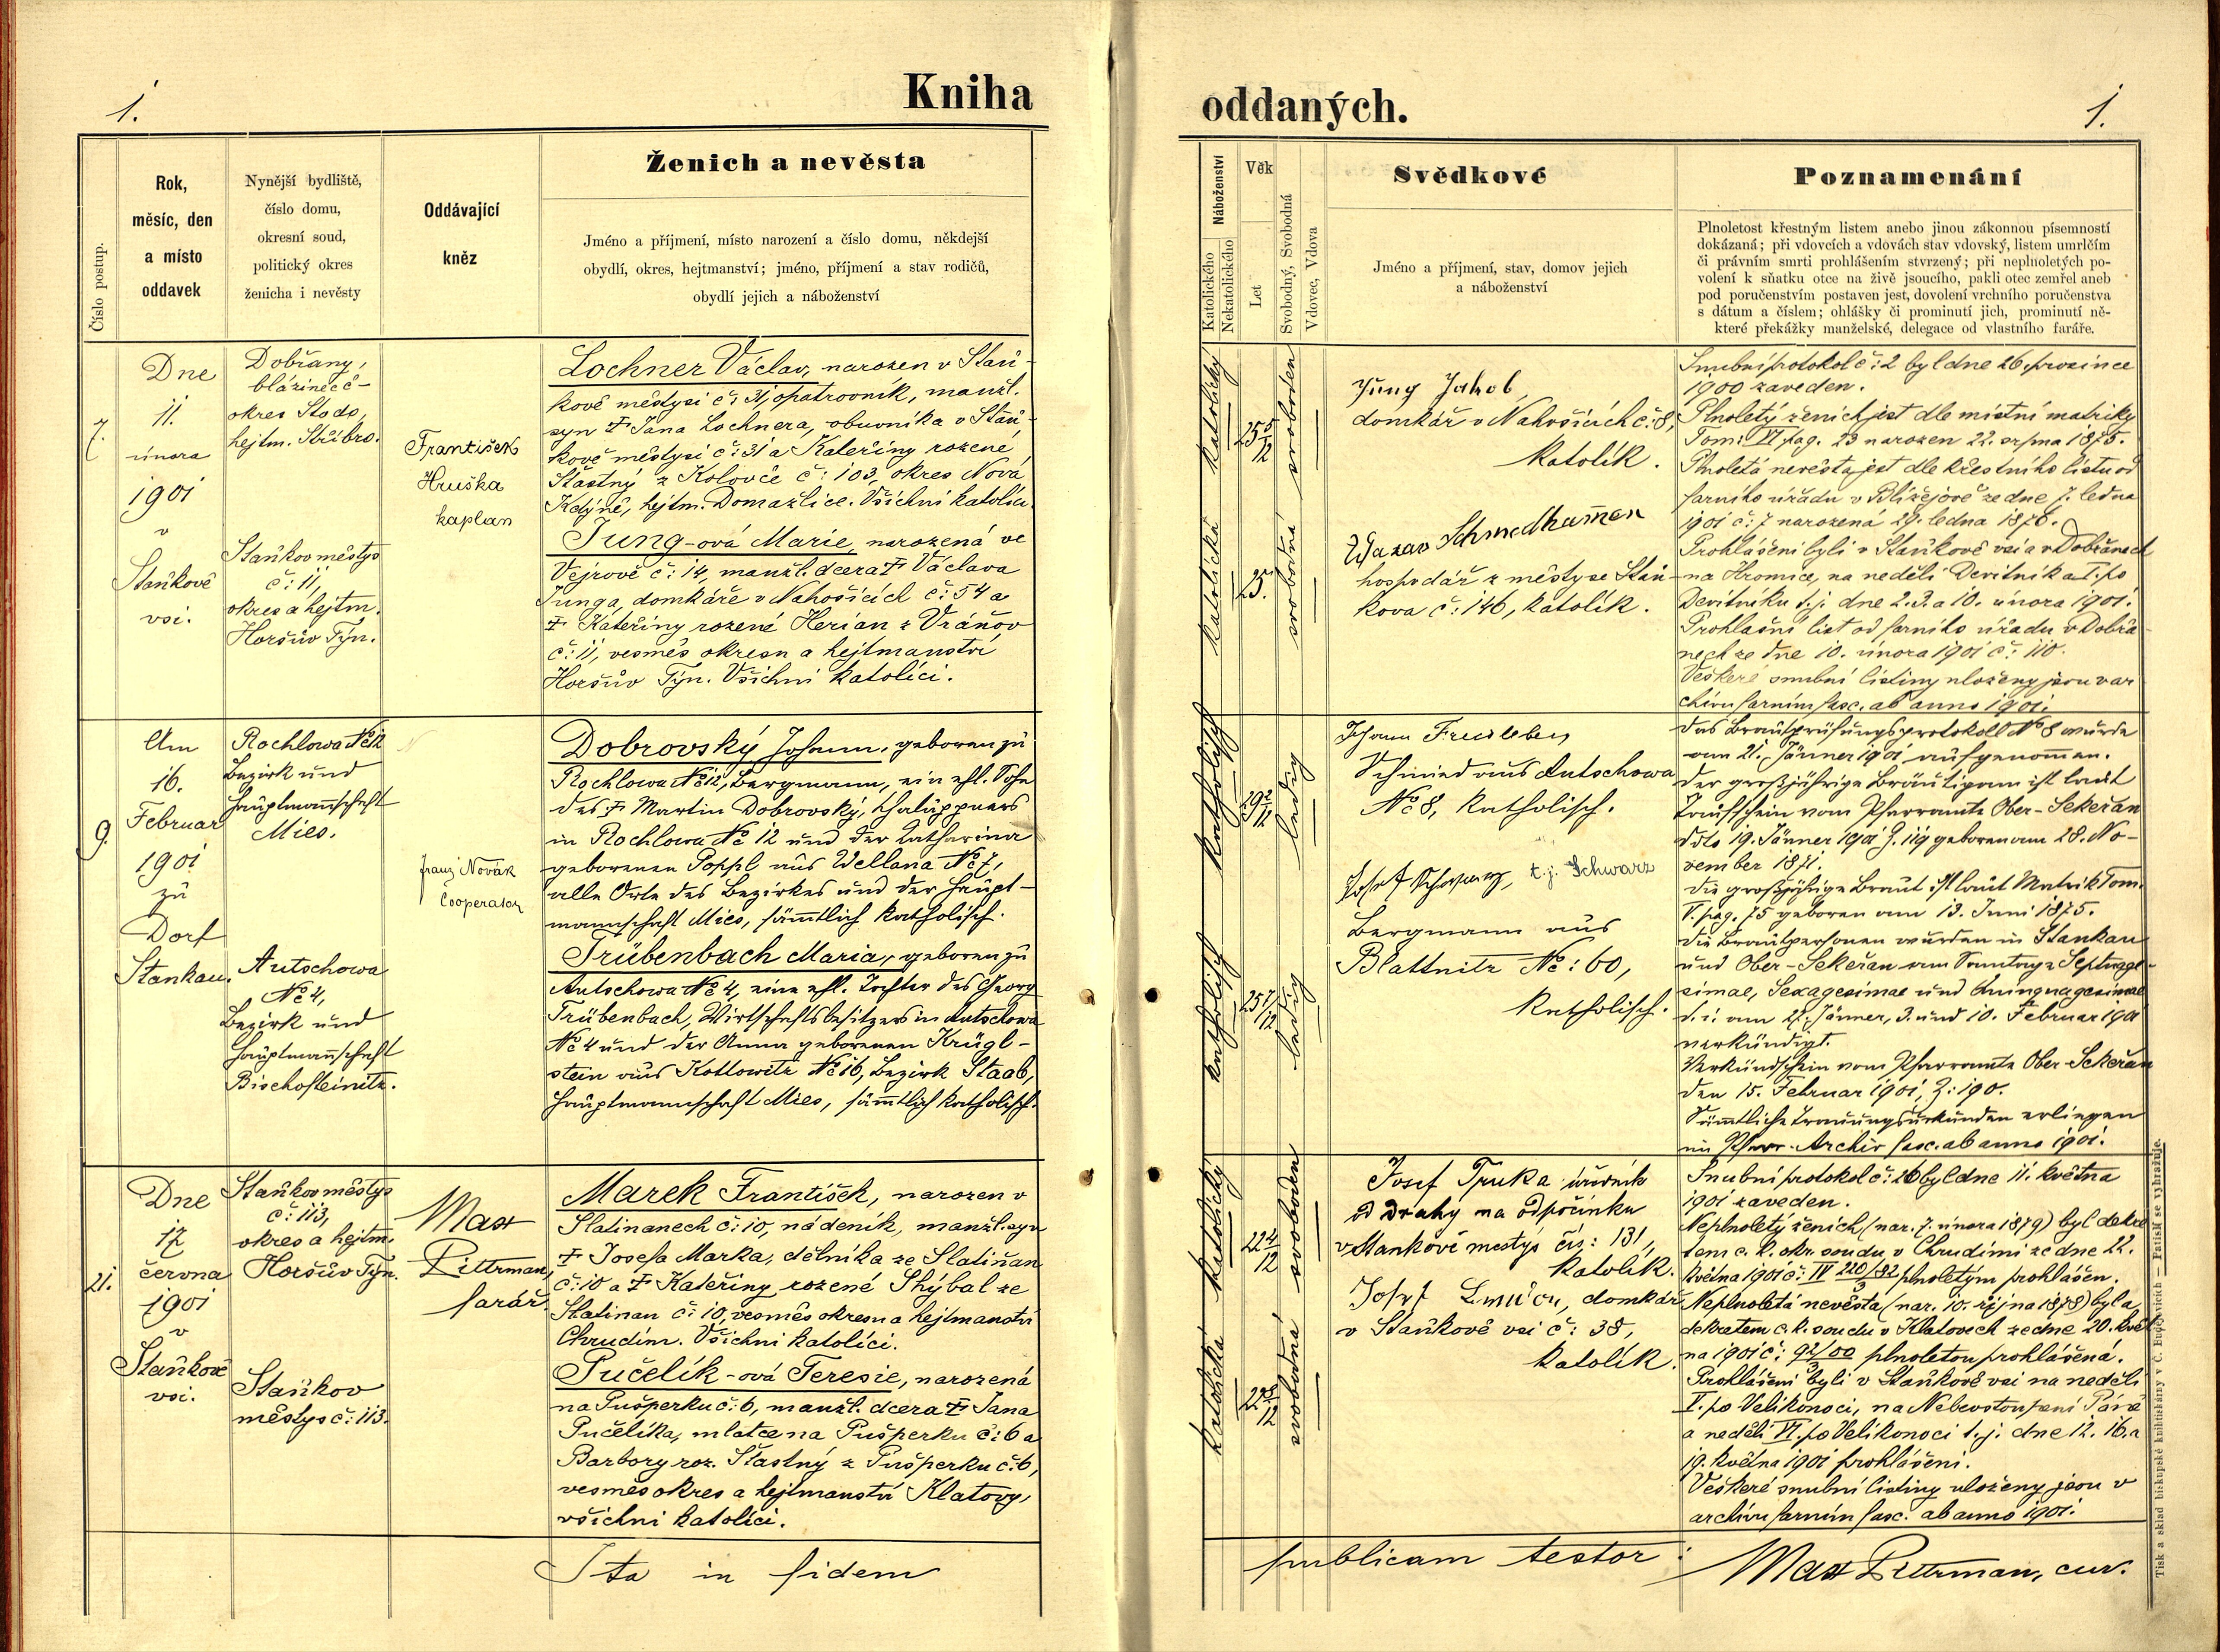 1.
Kniha
Číslo postup.
Rok,
měsíc, den
a místo
oddavek
Nynější bydliště,
číslo domu,
okresní soud,
politický okres
ženicha i nevěsty
Oddávající
kněz
Ženich a nevěsta
Jméno a příjmení, místo narození a číslo domu, někdejší
obydlí, okres, hejtmanství; jméno, příjmení a stav rodičů,
obydlí jejich a náboženství
7.
Dne
11.
února
1901
v
Staňkově
vsi.
Dobřany,
blázinec č –
okres Stodo,
hejtm. Stříbro.
Staňkov městys
č: 11,
okres a hejtm.
Horšův Týn.
František
Hruška
kaplan
Lochner Václav, narozen v Staň-
kově městysi č: 31, opatrovník, manžl.
syn † Jana Lochnera, obuvníka v Staň-
kově městysi č: 31 a Kateřiny rozené
Šťastný z Kolovče č: 103, okres Nová
Kdýně, hejtm. Domažlice. Všichni katolíci.
Jung-ová Marie, narozená ve
Vejrově č: 14, manžl. dcera † Václava
Junga, domkáře v Nahošicích č: 54 a
† Kateřiny rozené Herian z Vránov
č: 11, vesměs okresu a hejtmanství
Horšův Týn. Všichni katolíci.
9.
Am
16.
Februar
1901
zu
Dorf
Stankau.
Rochlowa No 12
Bezirk und
Hauptmannschaft
Mies.
Autschowa
No 4,
Bezirk und
Hauptmannschaft
Bischofteinitz.
Franz Novák
Cooperator
Dobrovský Johann, geboren zu
Rochlowa No 12, Bergmann, ein ehl. Sohn
des † Martin Dobrovský, Chaluppners
in Rochlowa No 12 und der Katharina
geborenen Poppl aus Wellana No 7,
alle Orte des Bezirkes und der Haupt-
mannschaft Mies, sämmtlich katholisch.
Trübenbach Maria, geboren zu
Autschowa No 4, eine ehl. Tochter des Georg
Trübenbach, Wirtschaftsbesitzers in Autschowa
No 4 und der Anna geborenen Krügl-
stein aus Kottowitz No 16, Bezirk Staab,
Hauptmannschaft Mies, sämmtlich katholisch.
21.
Dne
17
června
1901
v
Staňkově
vsi.
Staňkov městys
č: 113,
okres a hejtm.
Horšův Týn.
Staňkov
městys č: 113.
Max
Pittrman,
farář.
Marek František, narozen v
Slatinanech č: 10, nádeník, manžl. syn
† Josefa Marka, dělníka ze Slatiňan
č: 10 a † Kateřiny rozené Shýbal ze
Slatinan č: 10, vesměs okresu a hejtmanství
Chrudim. Všichni katolíci.
Pučelík-ová Teresie, narozená
na Pušperku č: 6, manžl. dcera † Jana
Pučelíka, mlatce na Pušperku č: 6 a
Barbory roz. Šťastný z Pušperku č: 6,
vesměs okres a hejtmanství Klatovy,
všichni katolíci.
Ita in fidem
oddaných.
1.
Náboženství
Katolického
Nekatolického
Věk
Let
Svobodný, Svobodná
Vdovec, Vdova
Svědkové
Jméno a příjmení, stav, domov jejich
a náboženství
Poznamenání
Plnoletost křestným listem anebo jinou zákonnou písemností
dokázaná; při vdovcích a vdovách stav vdovský, listem umrlčím
či právním smrti prohlášením stvrzený; při neplnoletých po-
volení k sňatku otce na živě jsoucího, pakli otec zemřel aneb
pod poručenstvím postaven jest, dovolení vrchního poručenstva
s dátum a číslem; ohlášky či prominutí jich, prominutí ně-
které překážky manželské, delegace od vlastního faráře.
katolický
25 5/12
svoboden
katolická
25.
svobodná
Jung Jakob,
domkář v Nahošicích č: 8,
katolík.
Schmedhammer
hospodář z městyse Staň-
kova č: 146, katolík.
Snubní protokol č: 2 byl dne 26. prosince
1900 zaveden.
Plnoletý ženich jest dle místní matriky
Tom: VI pag. 23 narozen 22. srpna 1875.
Plnoletá nevěsta jest dle křestního listu od
farního úřadu v Blížejově ze dne 7. ledna
1901 č: 7 narozená 29. ledna 1876.
Prohlášeni byli v Staňkově vsi a v Dobřanech
na Hromice, na neděli Devítník a I. po
Devítníku t.j. dne 2. 3. a 10. února 1901.
Prohlašní list od farního úřadu v Dobřa-
nech ze dne 10. února 1901 č: 110.
Veškeré snubní listiny uloženy jsou v ar-
chivu farním fasc. ab anno 1901.
katholisch
29 2/12
ledig
katholisch
25 7/12
ledig
Johann Freisleben
Schmied aus Autschowa
No 8, katholisch.
Josef Schwarz, t.j. Schwarz
Bergmann aus
Blattnitz No: 60,
katholisch.
Das Brautprüfungsprotokoll No 8 wurde
am 21. Jänner 1901 aufgenommen.
Der großjährige Bräutigam ist laut
Taufschein vom Pfarramte Ober-Sekeřan
ddto 19. Jänner 1901 Z. 119 geboren am 28. No-
vember 1871.
Die großjährige Braut ist laut Matrik Tom.
V. pag. 75 geboren am 13. Juni 1875.
Die Brautpersonen wurden in Stankau
und Ober-Sekeřan am Sonntag Septuage-
simae, Sexagesimae und Quinquagesimae
d. i. am 27. Jänner, 3. und 10. Februar 1901
verkündigt.
Verkündschein vom Pfarramte Ober-Sekeřan
den 15. Februar 1901, Z: 190.
Sämmtliche Trauungsurkunden erliegen
im Pfarr-Archiv fasc. ab anno 1901.
katolický
22 4/12
svoboden
katolická
22 8/12
svobodná
Josef Truka úředník
od drahy na odpočinku
v Stankově mestys čís: 131,
katolík.
Josef domkář
v Staňkově vsi č: 38,
katolík.
Snubní protokol č: 26 byl dne 11. května
1901 zaveden.
Neplnoletý ženich (nar. 7. února 1879) byl dekre-
tem c. k. okr. soudu v Chrudimi ze dne 22.
května 1901 č: IV 220/82 plnoletým prohlášen.
Neplnoletá nevěsta (nar. 10. října 1878) byla
dekretem c. k. soudu v Klatovech ze dne 20. květ-
na 1901 č: 92/00 plnoletou prohlášená.
Prohlášeni byli v Staňkově vsi na neděli
V. po Velikonoci, na Nebevstoupení Páně
a neděli VI. po Velikonoci t.j. dne 12. 16. a
19. května 1901 prohlášeni.
Veškeré snubní listiny uloženy jsou v
archivu farním fasc. ab anno 1901.
publicam testor:
Max Pittrman, cur.
Tisk a sklad biskupské knihtiskárny v Č. Budějovicích — Patisk se vyhražuje.